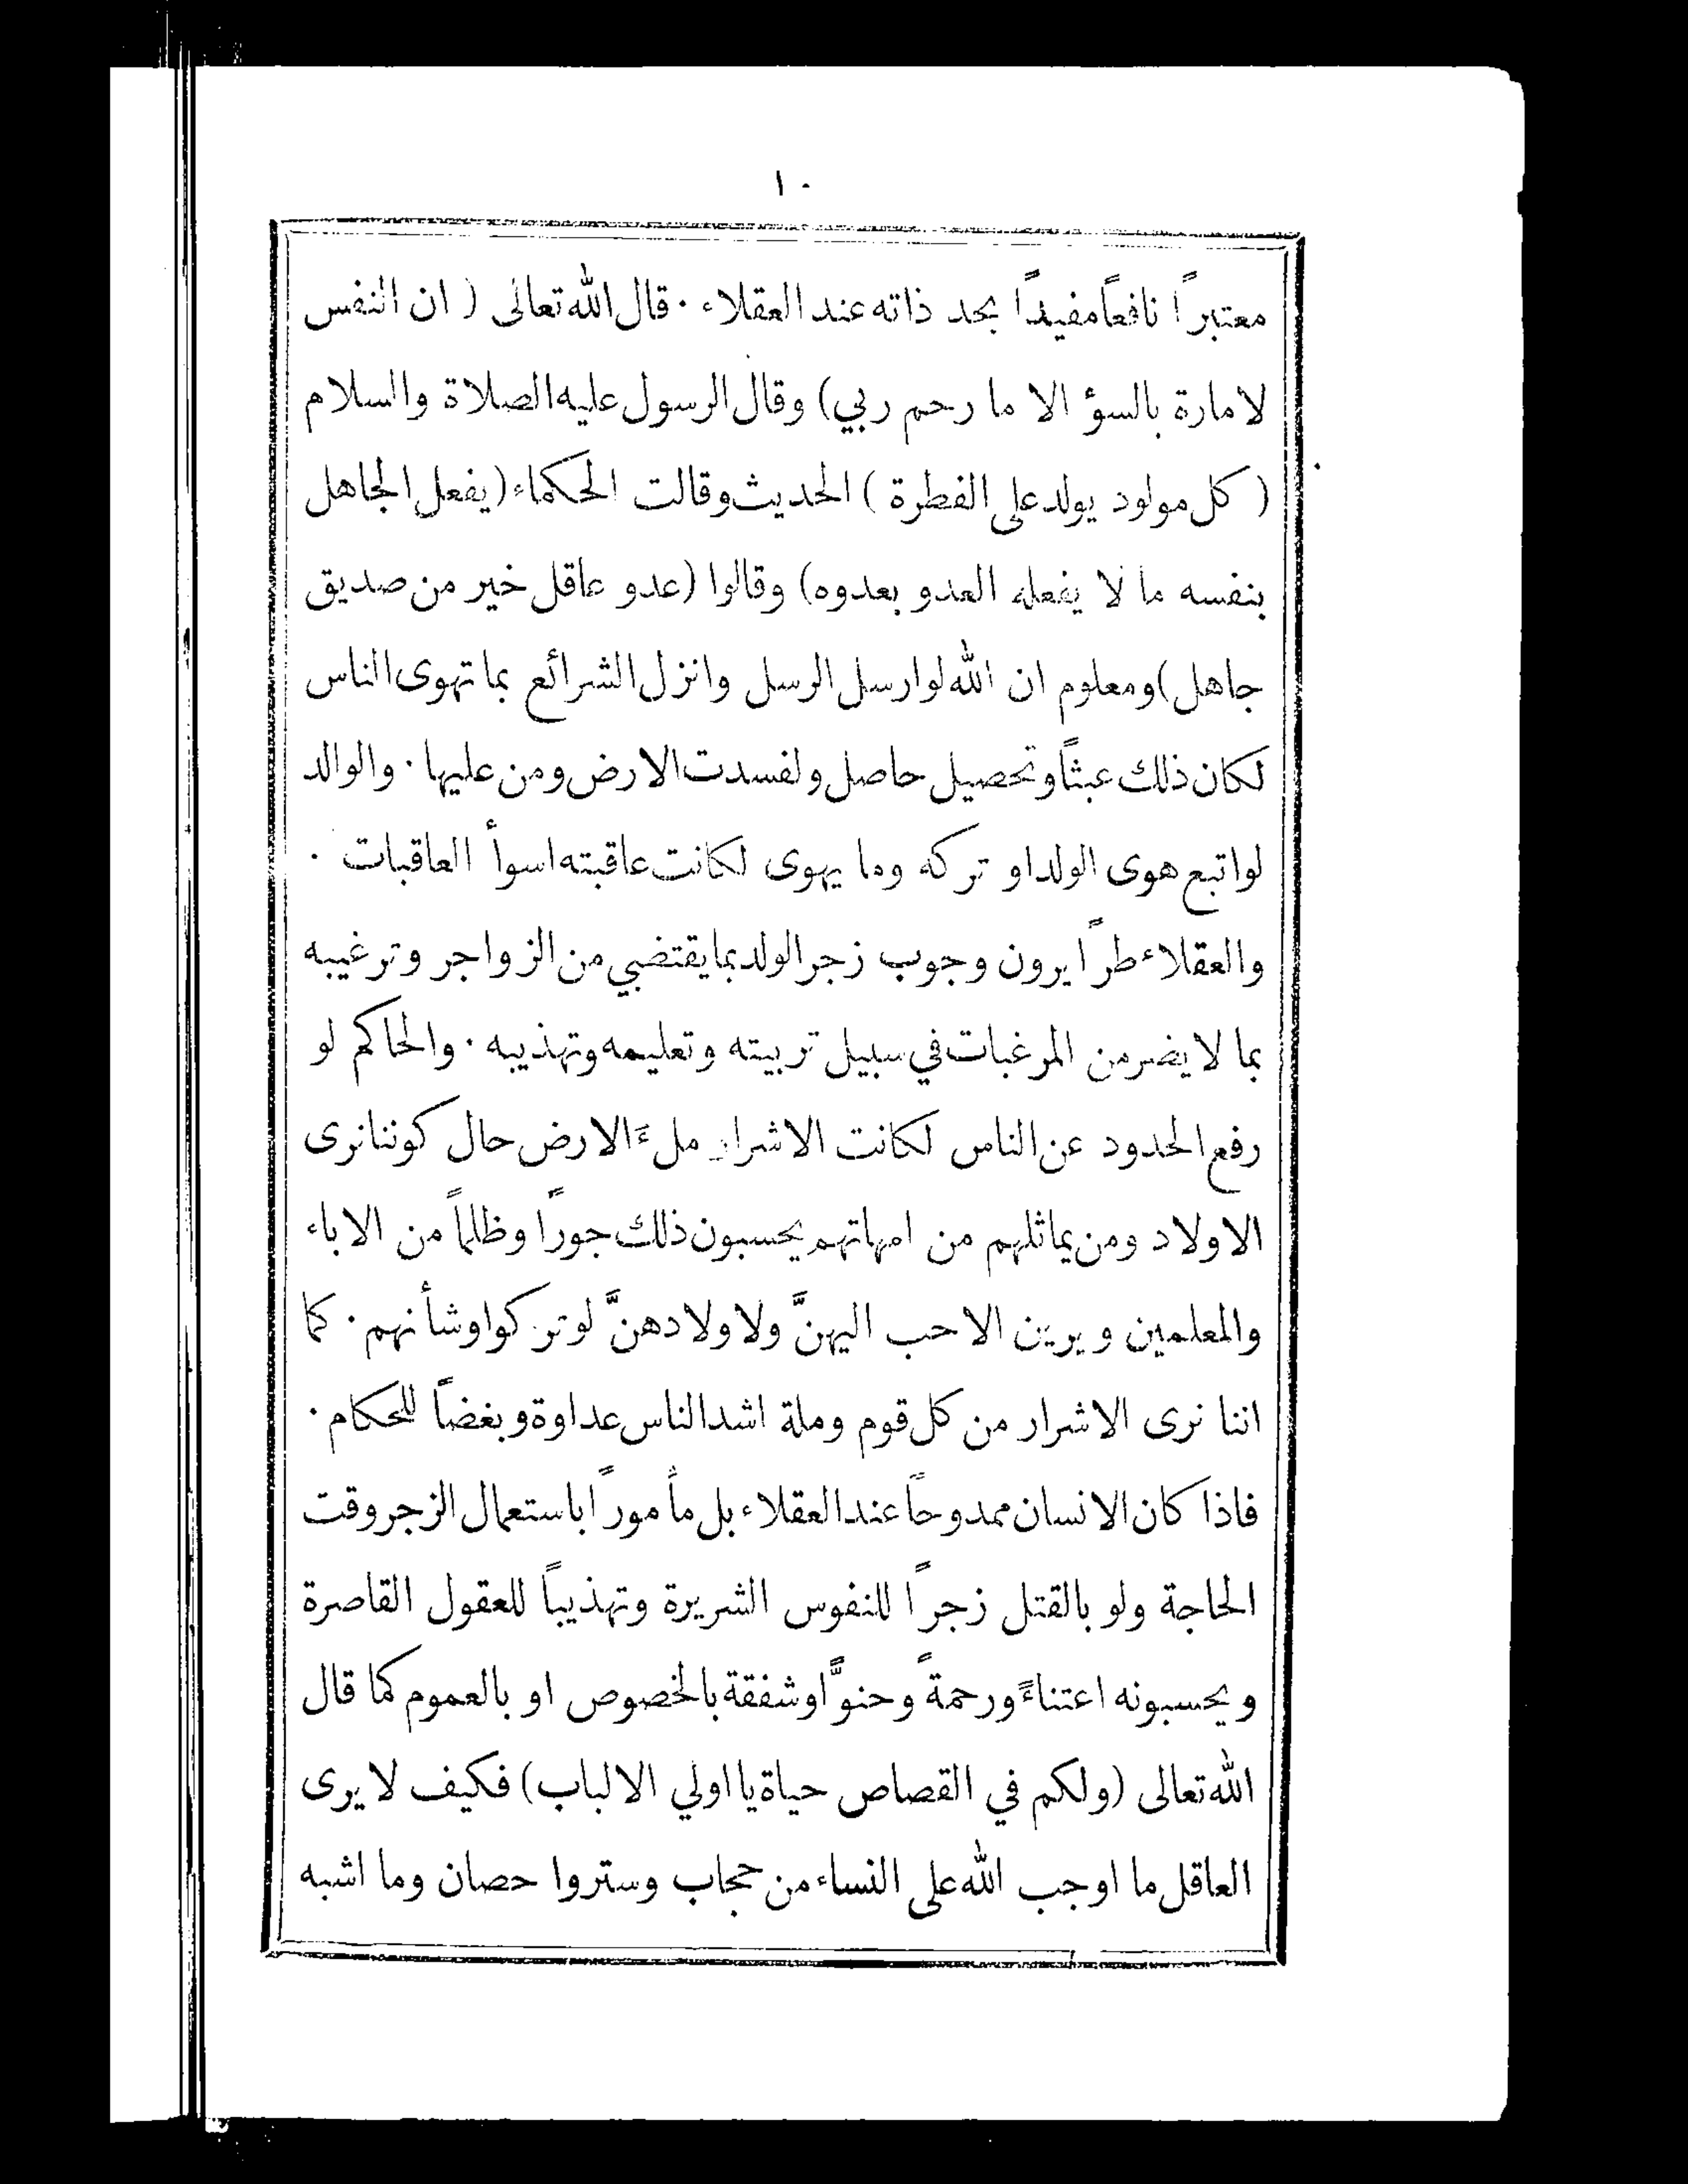 ١٠
معتبراً نافعاً مفيداً بحد ذاته عند العقلاء · قال الله تعالى ( ان النفس
لامارة بالسؤ الا ما رحم ربي) وقال الرسول عليه الصلاة والسلام
( كل مولود يولد على الفطرة ) الحديث وقالت الحكماء (يفعل الجاهل
بنفسه ما لا يفعله العدو بعدوه) وقالوا (عدو عاقل خير من صديق
جاهل) ومعلوم ان الله لو ارسل الرسل وانزل الشرائع بما تهوى الناس
لكان ذلك عبثاً وتحصيل حاصل ولفسدت الارض ومن عليها · والوالد
لو اتبع هوى الولد او تركه وما يهوى لكانت عاقبته اسوأ العاقبات ·
والعقلاء طراً يرون وجوب زجر الولد بما يقتضي من الزواجر وترغيبه
بما لا يضر من المرغبات في سبيل تربيته وتعليمه وتهذيبه · والحاكم لو
رفع الحدود عن الناس لكانت الاشرار ملءَ الارض حال كوننا نرى
الاولاد ومن يماثلهم من امهاتهم يحسبون ذلك جوراً وظلماً من الاباء
والمعلمين ويرين الاحب اليهنَّ ولاولادهنَّ لو تركوا وشأنهم · كما
اننا نرى الاشرار من كل قوم وملة اشد الناس عداوة وبغضاً للحكام ·
فاذا كان الانسان ممدوحاً عند العقلاء بل مأموراً باستعمال الزجر وقت
الحاجة ولو بالقتل زجراً للنفوس الشريرة وتهذيباً للعقول القاصرة
ويحسبونه اعتناءً ورحمةً وحنوًّا وشفقة بالخصوص او بالعموم كما قال
الله تعالى (ولكم في القصاص حياة يا اولي الالباب) فكيف لا يرى
العاقل ما اوجب الله على النساء من حجاب وستروا حصان وما اشبه